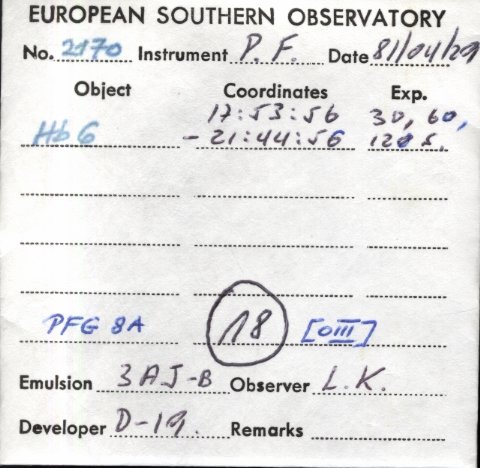 EUROPEAN SOUTHERN OBSERVATORY
No. 2170 Instrument P. F. Date 81/04/29
Object Coordinates Exp.
17:53:56 30, 60,
Hb 6 - 21:44:56 120 s.
PFG 8A 18 [OIII]
Emulsion 3AJ-B Observer L.K.
Developer D-19. Remarks